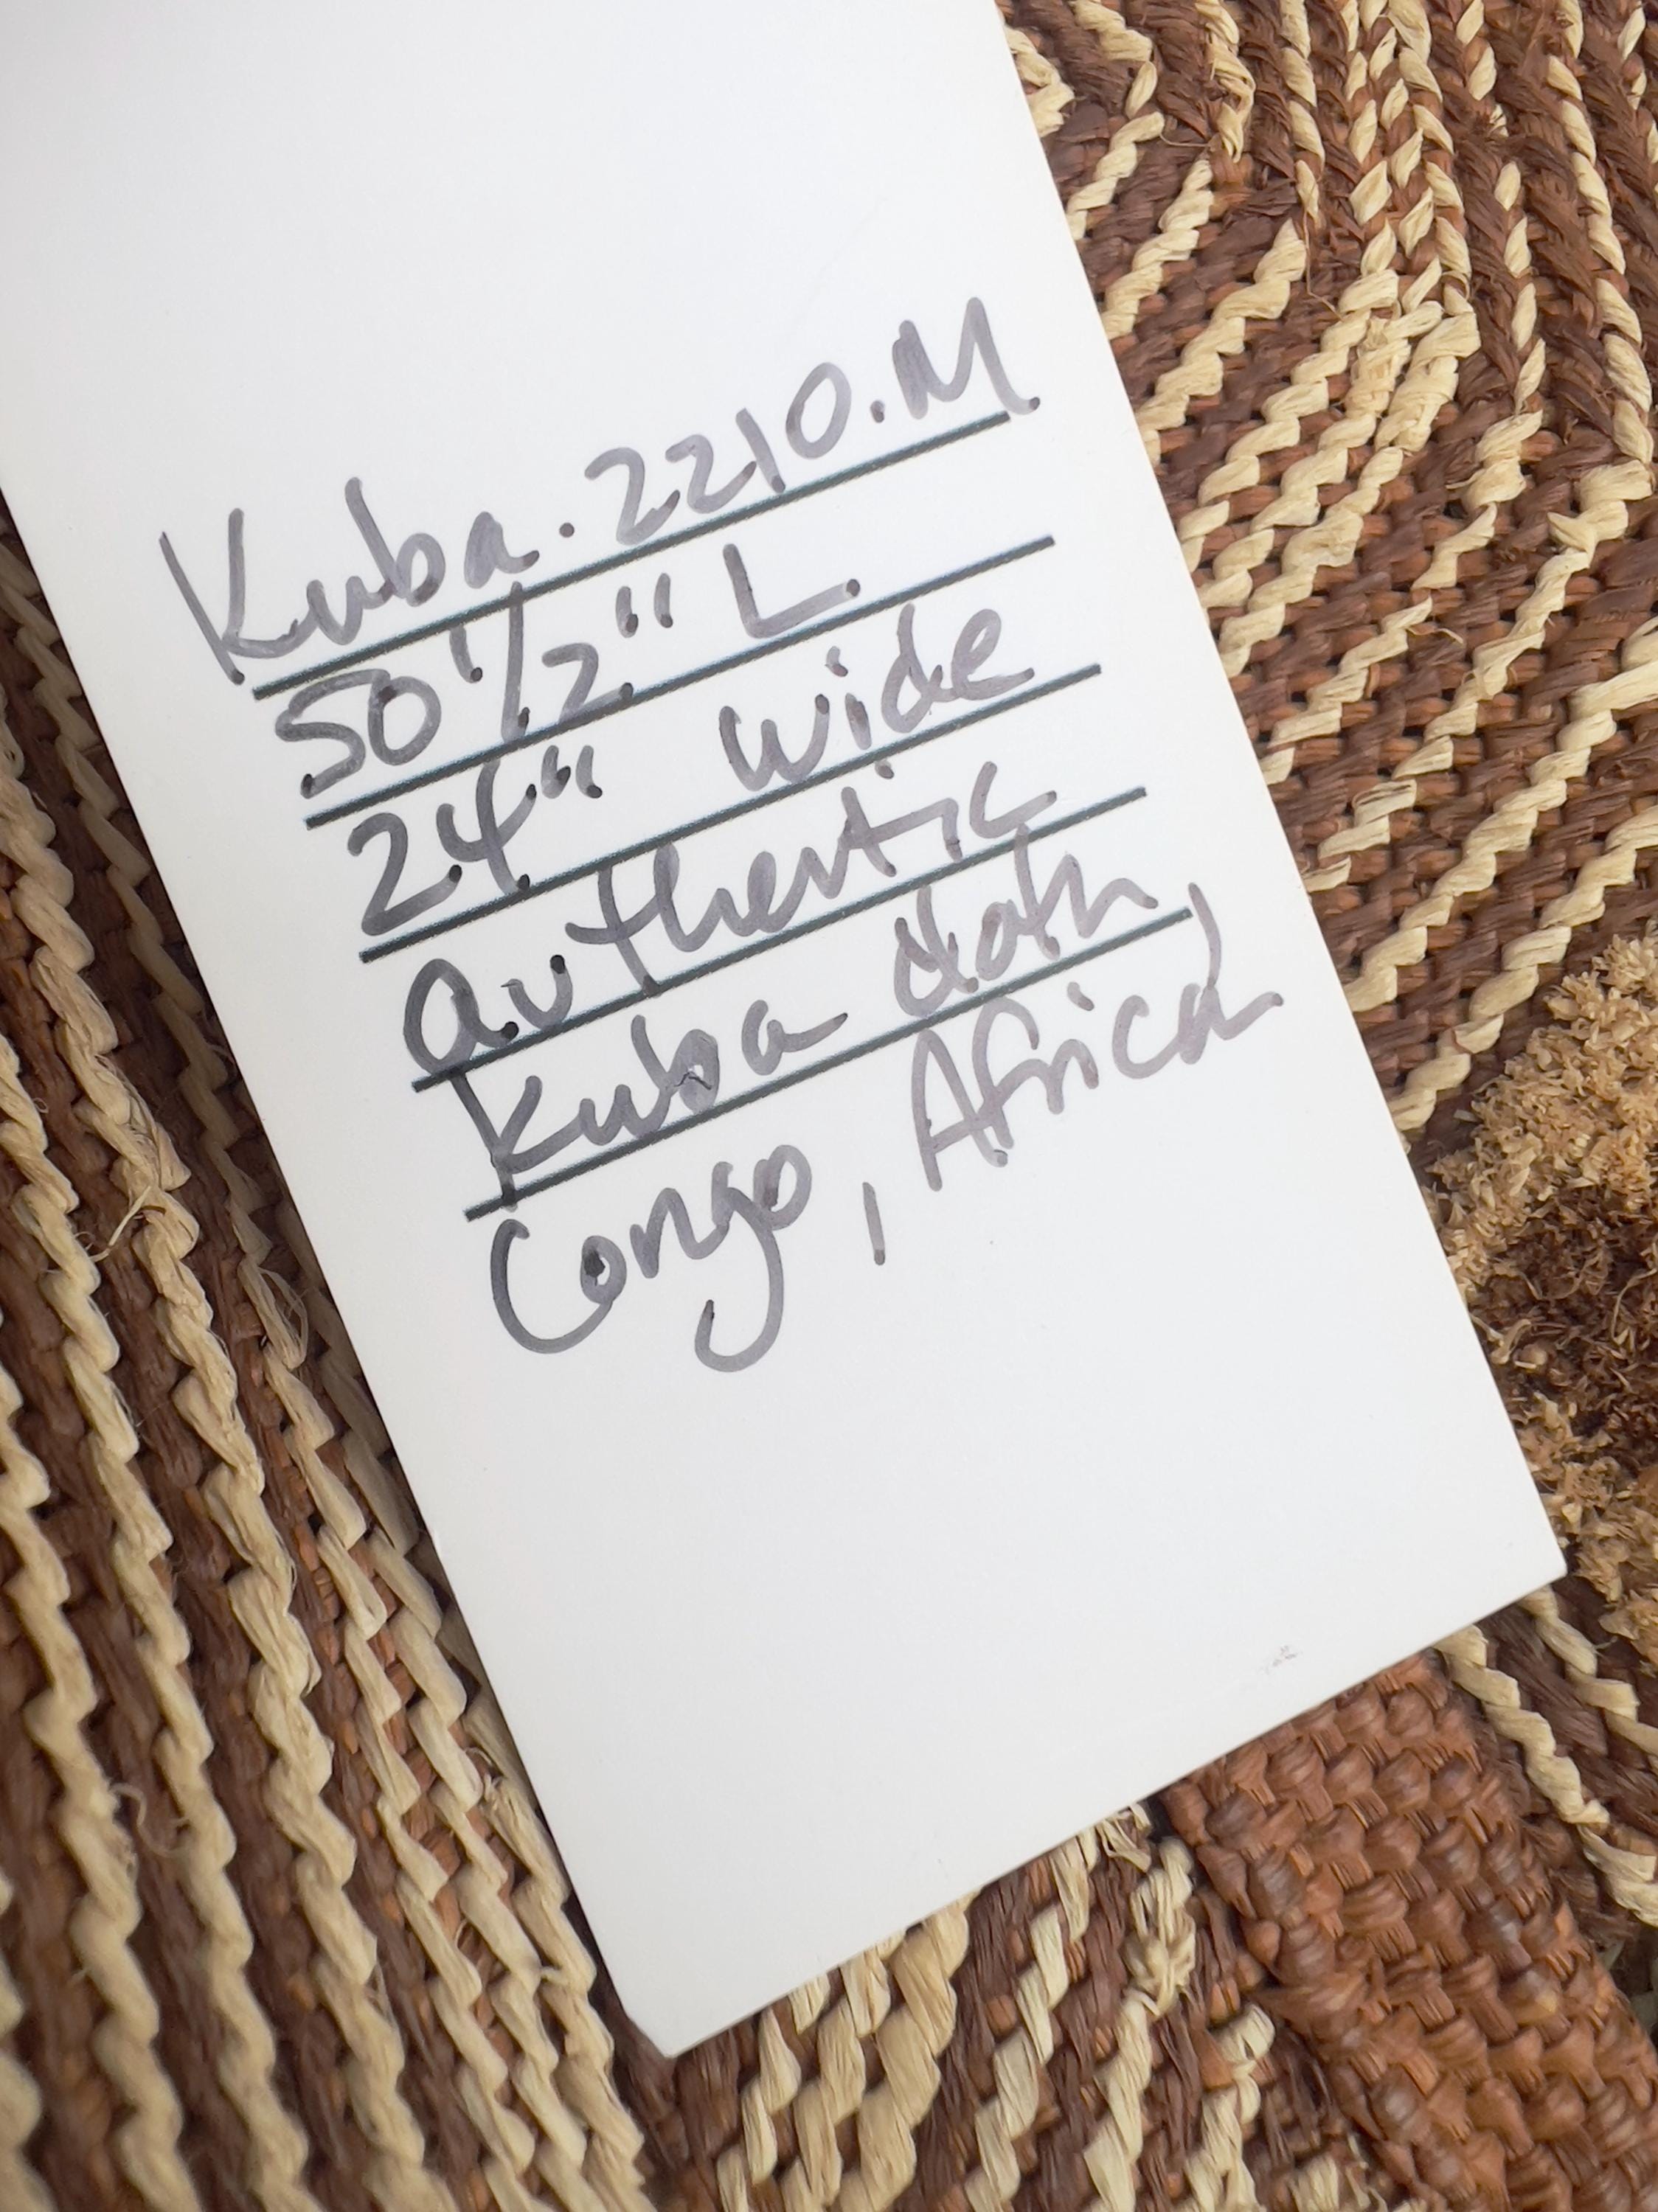 Kuba.2210.M
50 1/2" L.
24" wide
authentic
Kuba cloth,
Congo, Africa